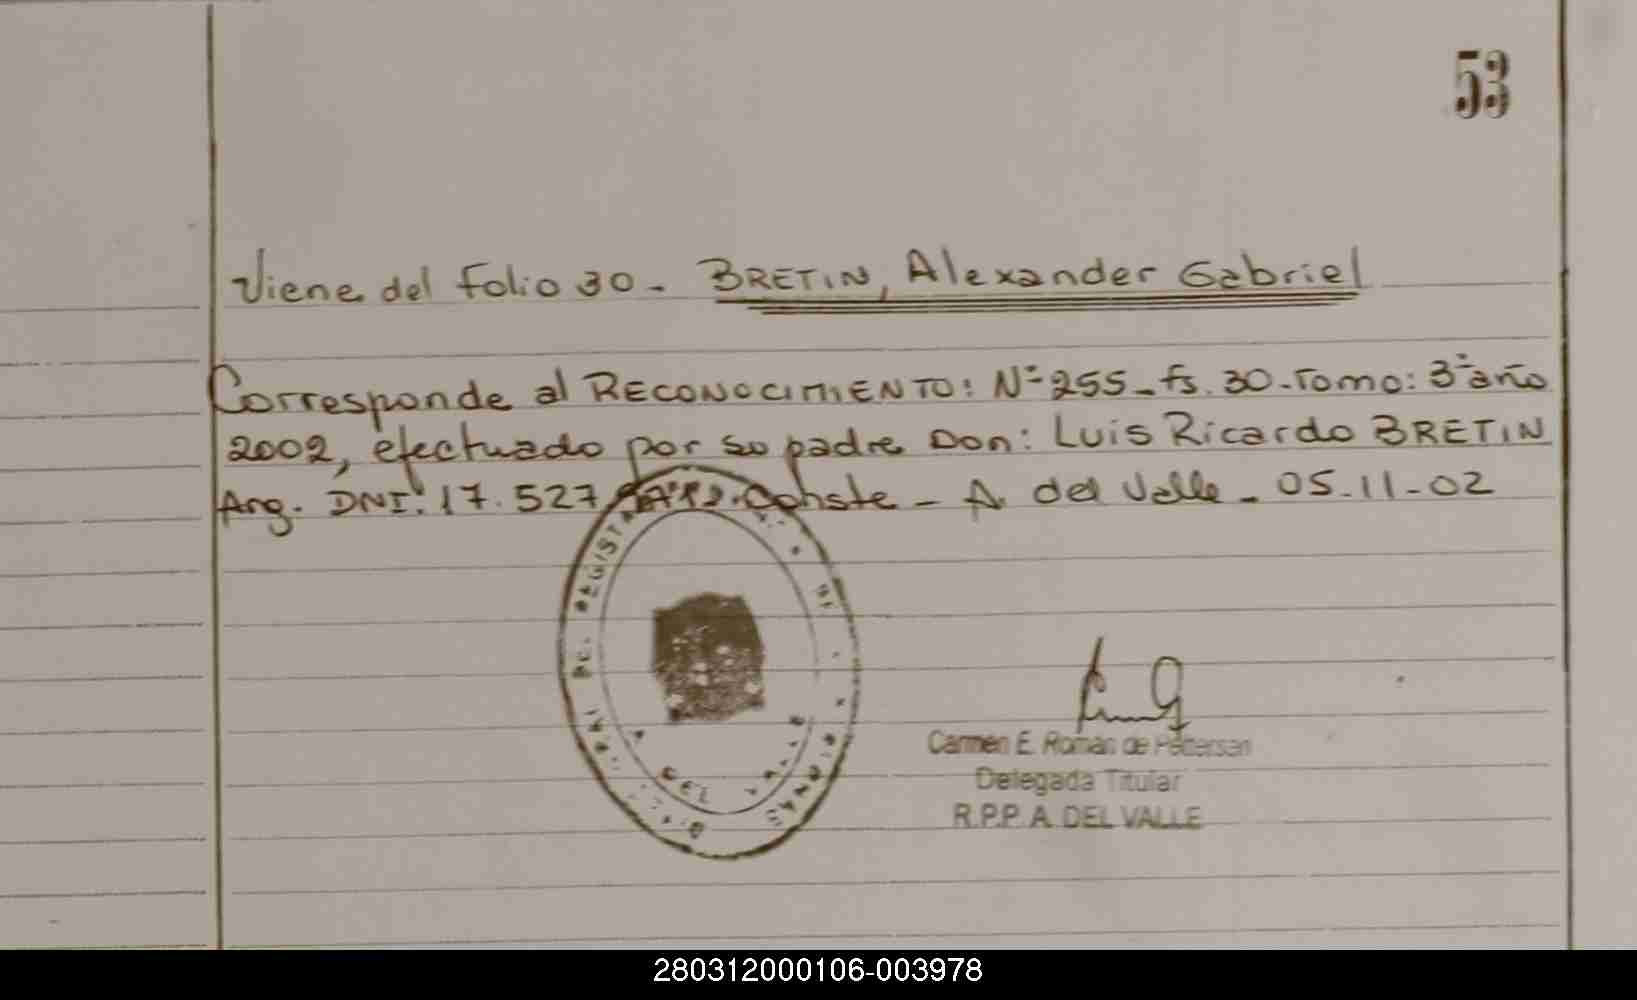 53
Viene del Folio 30 - BRETIN, Alexander Gabriel
Corresponde al RECONOCIMIENTO: Nº 255 - fs. 30 - Tomo: 3º año
2002, efectuado por su padre Don: Luis Ricardo BRETIN
Arg. DNI: 17.527 Conste - A. del Valle - 05-11-02
Carmen E. Román de Pettersen
Delegada Titular
R.P.P. A. DEL VALLE
280312000106-003978